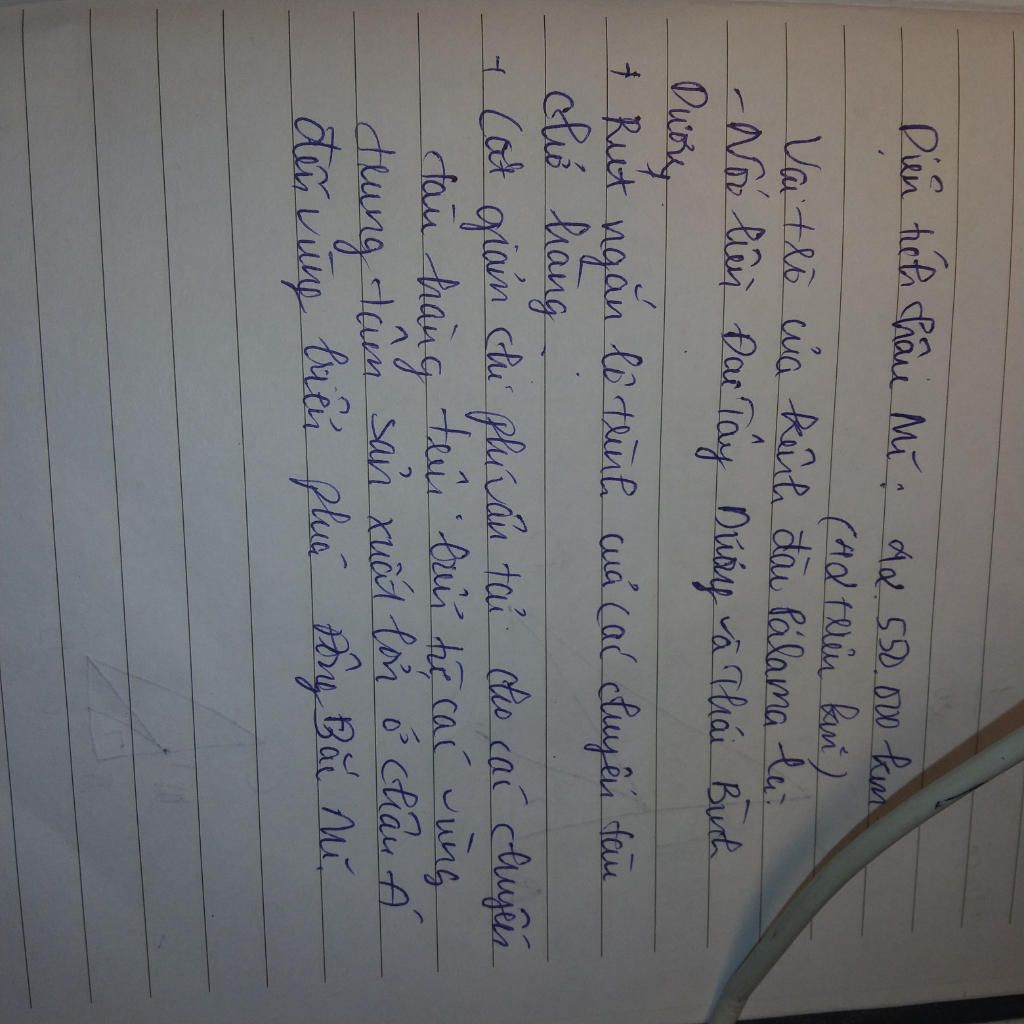 Diện tích châu Mĩ: 42.550.000 km
(42 triệu km²)
Vai trò của kênh đào Pálama là:
- Nối liền Đại Tây Dương và Thái Bình
Dương
+ Rút ngắn lộ trình của các chuyến tàu
chở hàng
+ Cắt giảm chi phí vận tải cho các chuyến
tàu hàng trên biển từ các vùng
trung tâm sản xuất lớn ở châu Á
đến vùng biển phía Đông Bắc Mĩ.